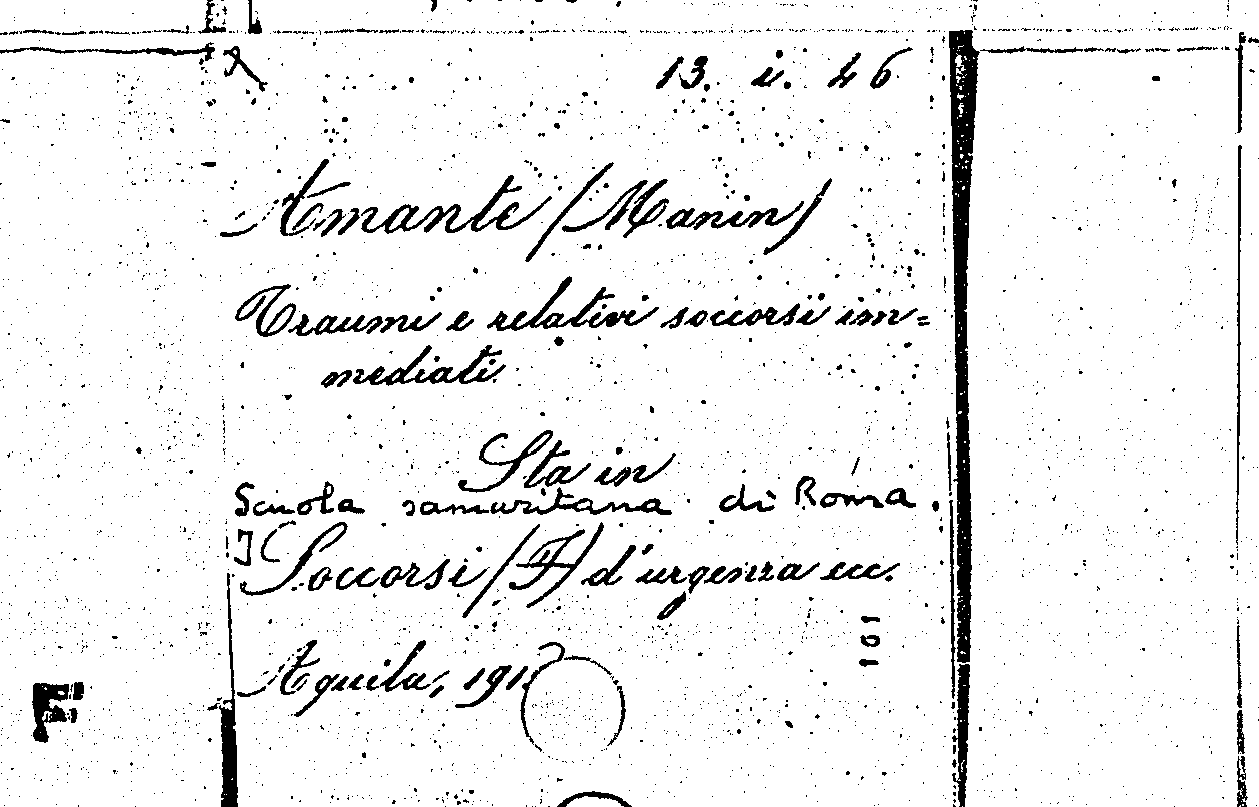 13. i. 46
Amante (Manin)
Traumi e relativi soccorsi im=
mediati.
Sta in
Scuola samaritana di Roma.
I Soccorsi (I) d'urgenza ecc.
101
Aquila, 191